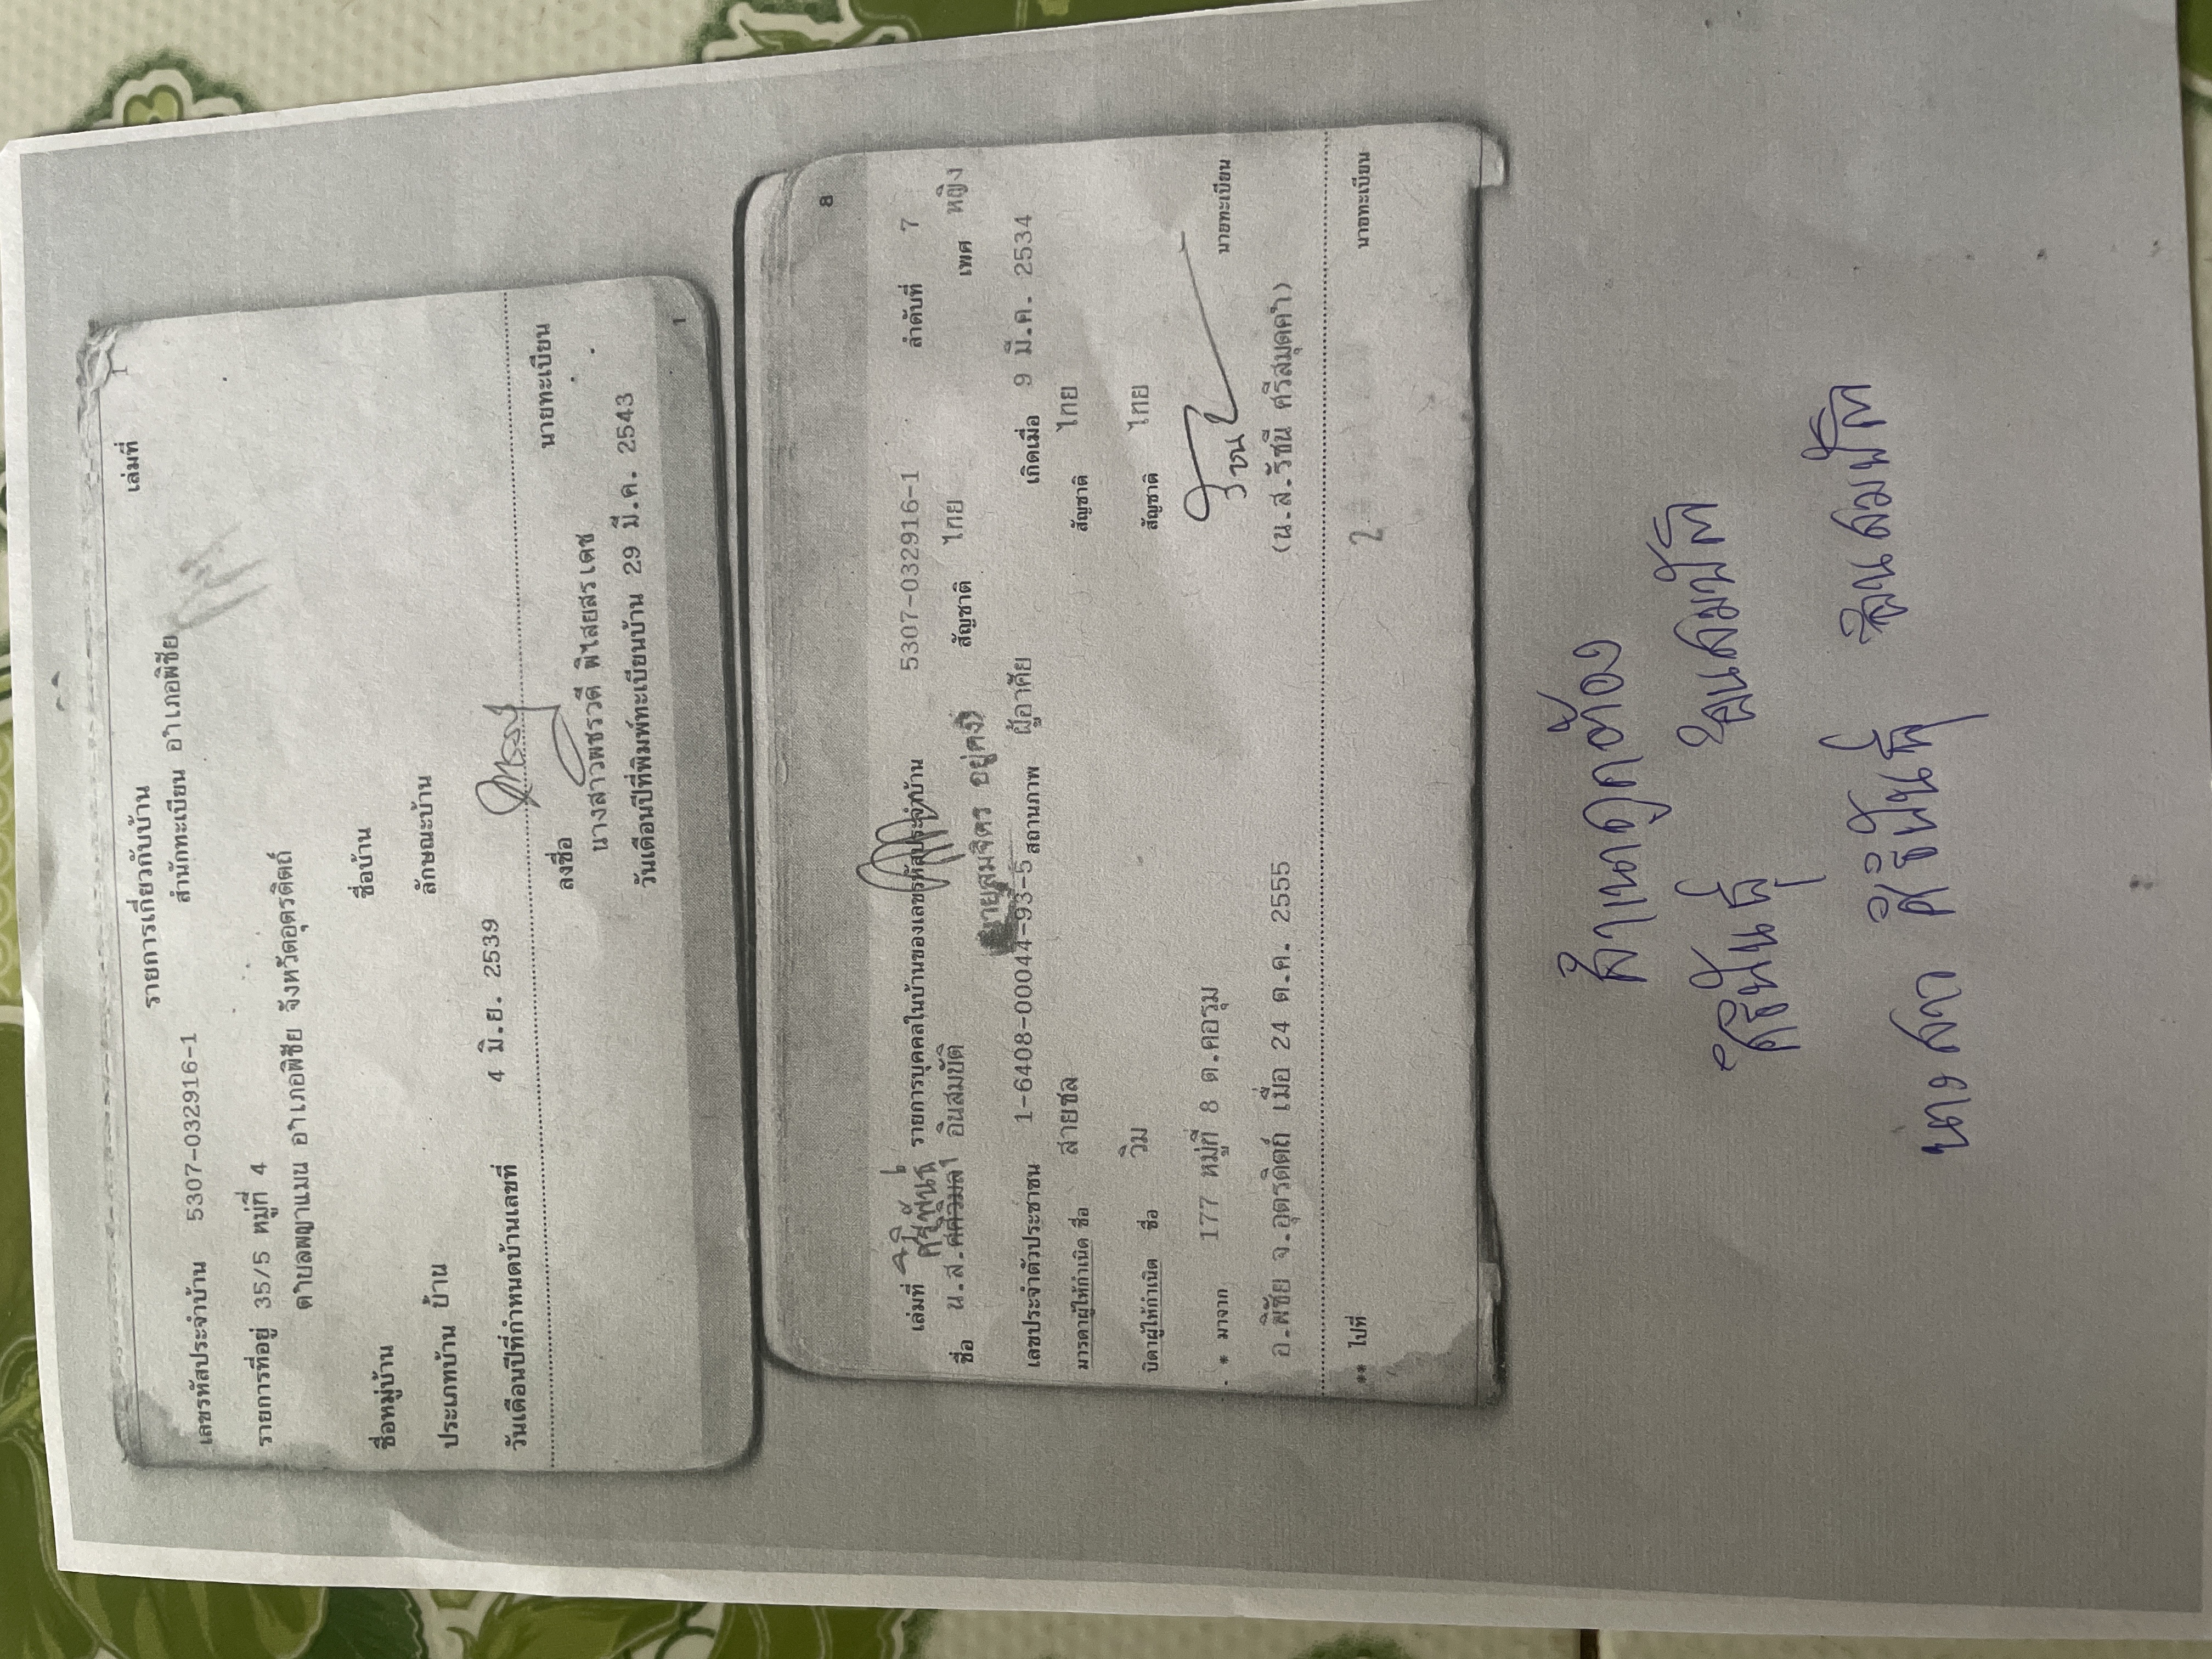 เล่มที่
รายการเกี่ยวกับบ้าน
เลขรหัสประจำบ้าน 5307-032916-1 สำนักทะเบียน อำเภอพิชัย
รายการที่อยู่ 35/5 หมู่ที่ 4
ตำบลพญาแมน อำเภอพิชัย จังหวัดอุตรดิตถ์
ชื่อหมู่บ้าน ชื่อบ้าน
ประเภทบ้าน บ้าน ลักษณะบ้าน
วันเดือนปีที่กำหนดบ้านเลขที่ 4 มิ.ย. 2539
ลงชื่อ นายทะเบียน
นางสาวพชรวดี พิไลยสรเดช
วันเดือนปีที่พิมพ์ทะเบียนบ้าน 29 มี.ค. 2543
1
8
เล่มที่ รายการบุคคลในบ้านของเลขรหัสประจำบ้าน 5307-032916-1 ลำดับที่ 7
ชื่อ น.ส. อินสมบัติ สัญชาติ ไทย เพศ หญิง
สมจิตร อยู่คง
เลขประจำตัวประชาชน 1-6408-00044-93-5 สถานภาพ ผู้อาศัย เกิดเมื่อ 9 มี.ค. 2534
มารดาผู้ให้กำเนิด ชื่อ สายชล สัญชาติ ไทย
บิดาผู้ให้กำเนิด ชื่อ วิม สัญชาติ ไทย
* มาจาก 177 หมู่ที่ 8 ต.คอรุม
นายทะเบียน
อ.พิชัย จ.อุตรดิตถ์ เมื่อ 24 ต.ค. 2555 (น.ส.รัชนี ศรีสมุดคำ)
** ไปที่ นายทะเบียน
สำเนาถูกต้อง
ศิริพันธุ์ อินสมบัติ
นางสาว ศิริพันธุ์ อินสมบัติ